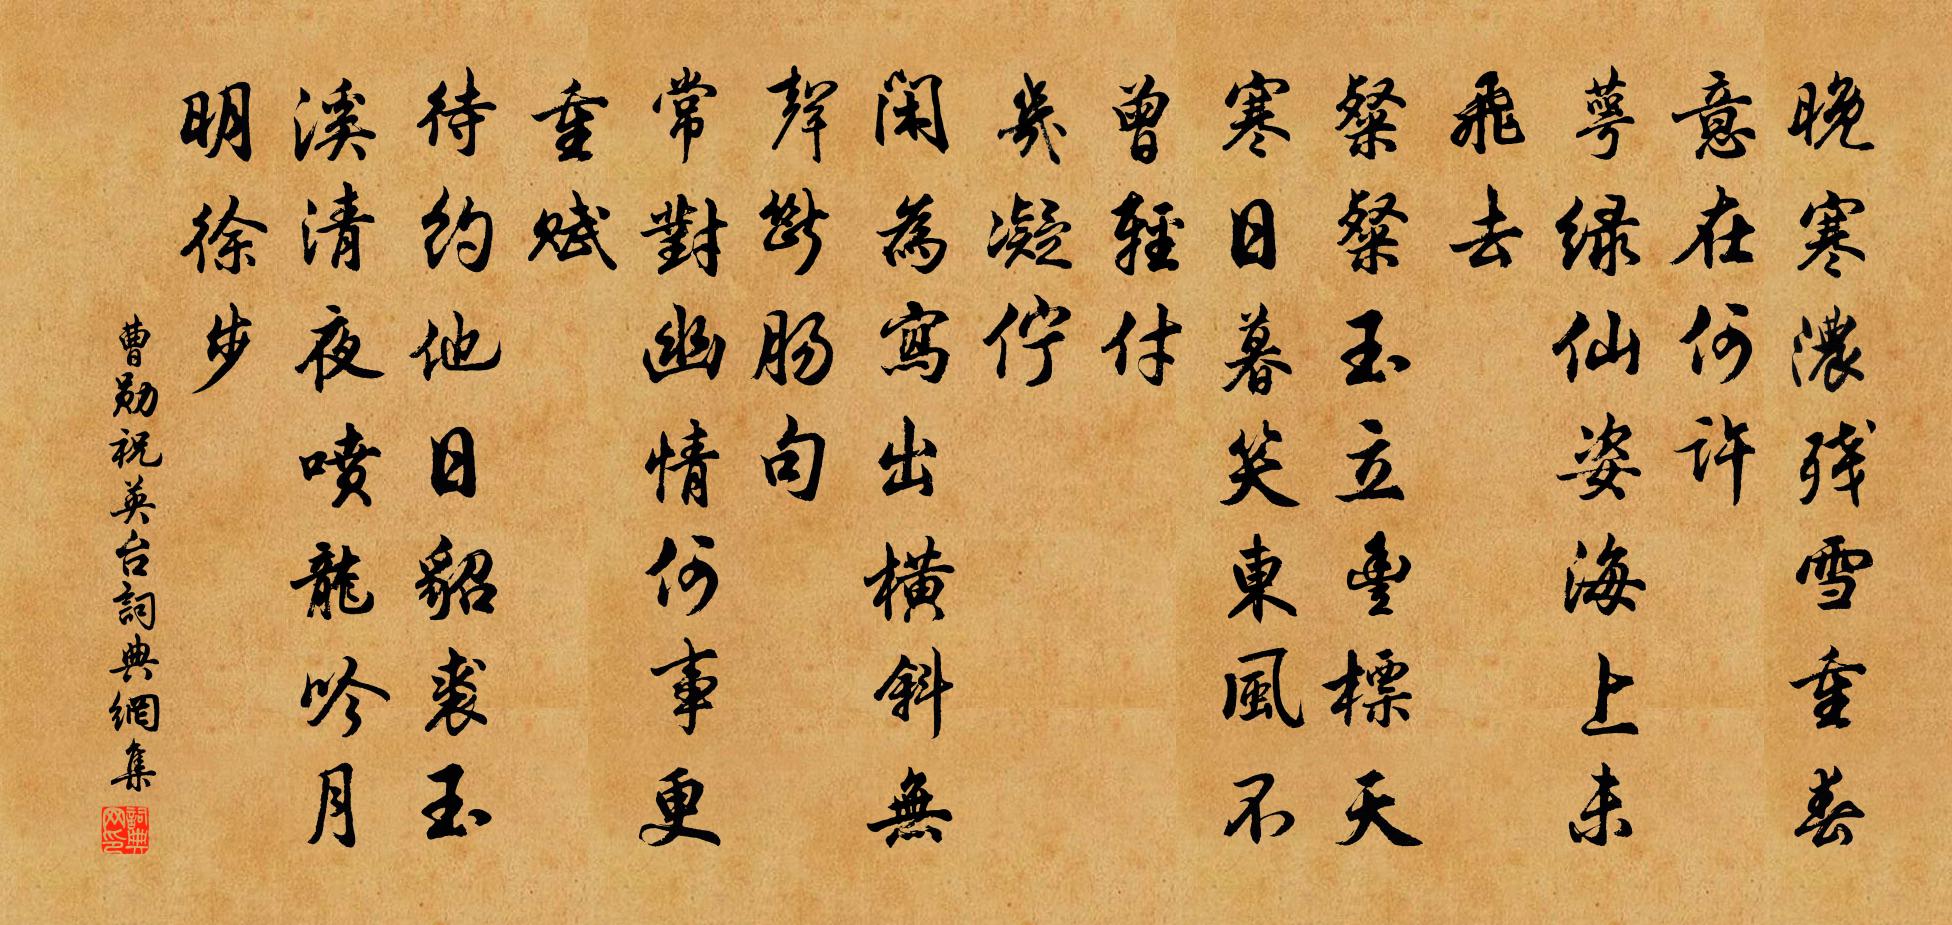 晚寒濃残雪重春
意在何許
萼绿仙姿海上未
飛去
粲粲玉立豊標天
寒日暮笑東風不
曾輕付
幾凝佇
閑為寫出横斜無
聲断肠句
常對幽情何事更
重赋
待约他日貂裘玉
溪清夜喷龍吟月
明徐步
曹勛祝英台詞典網集
詞典网印